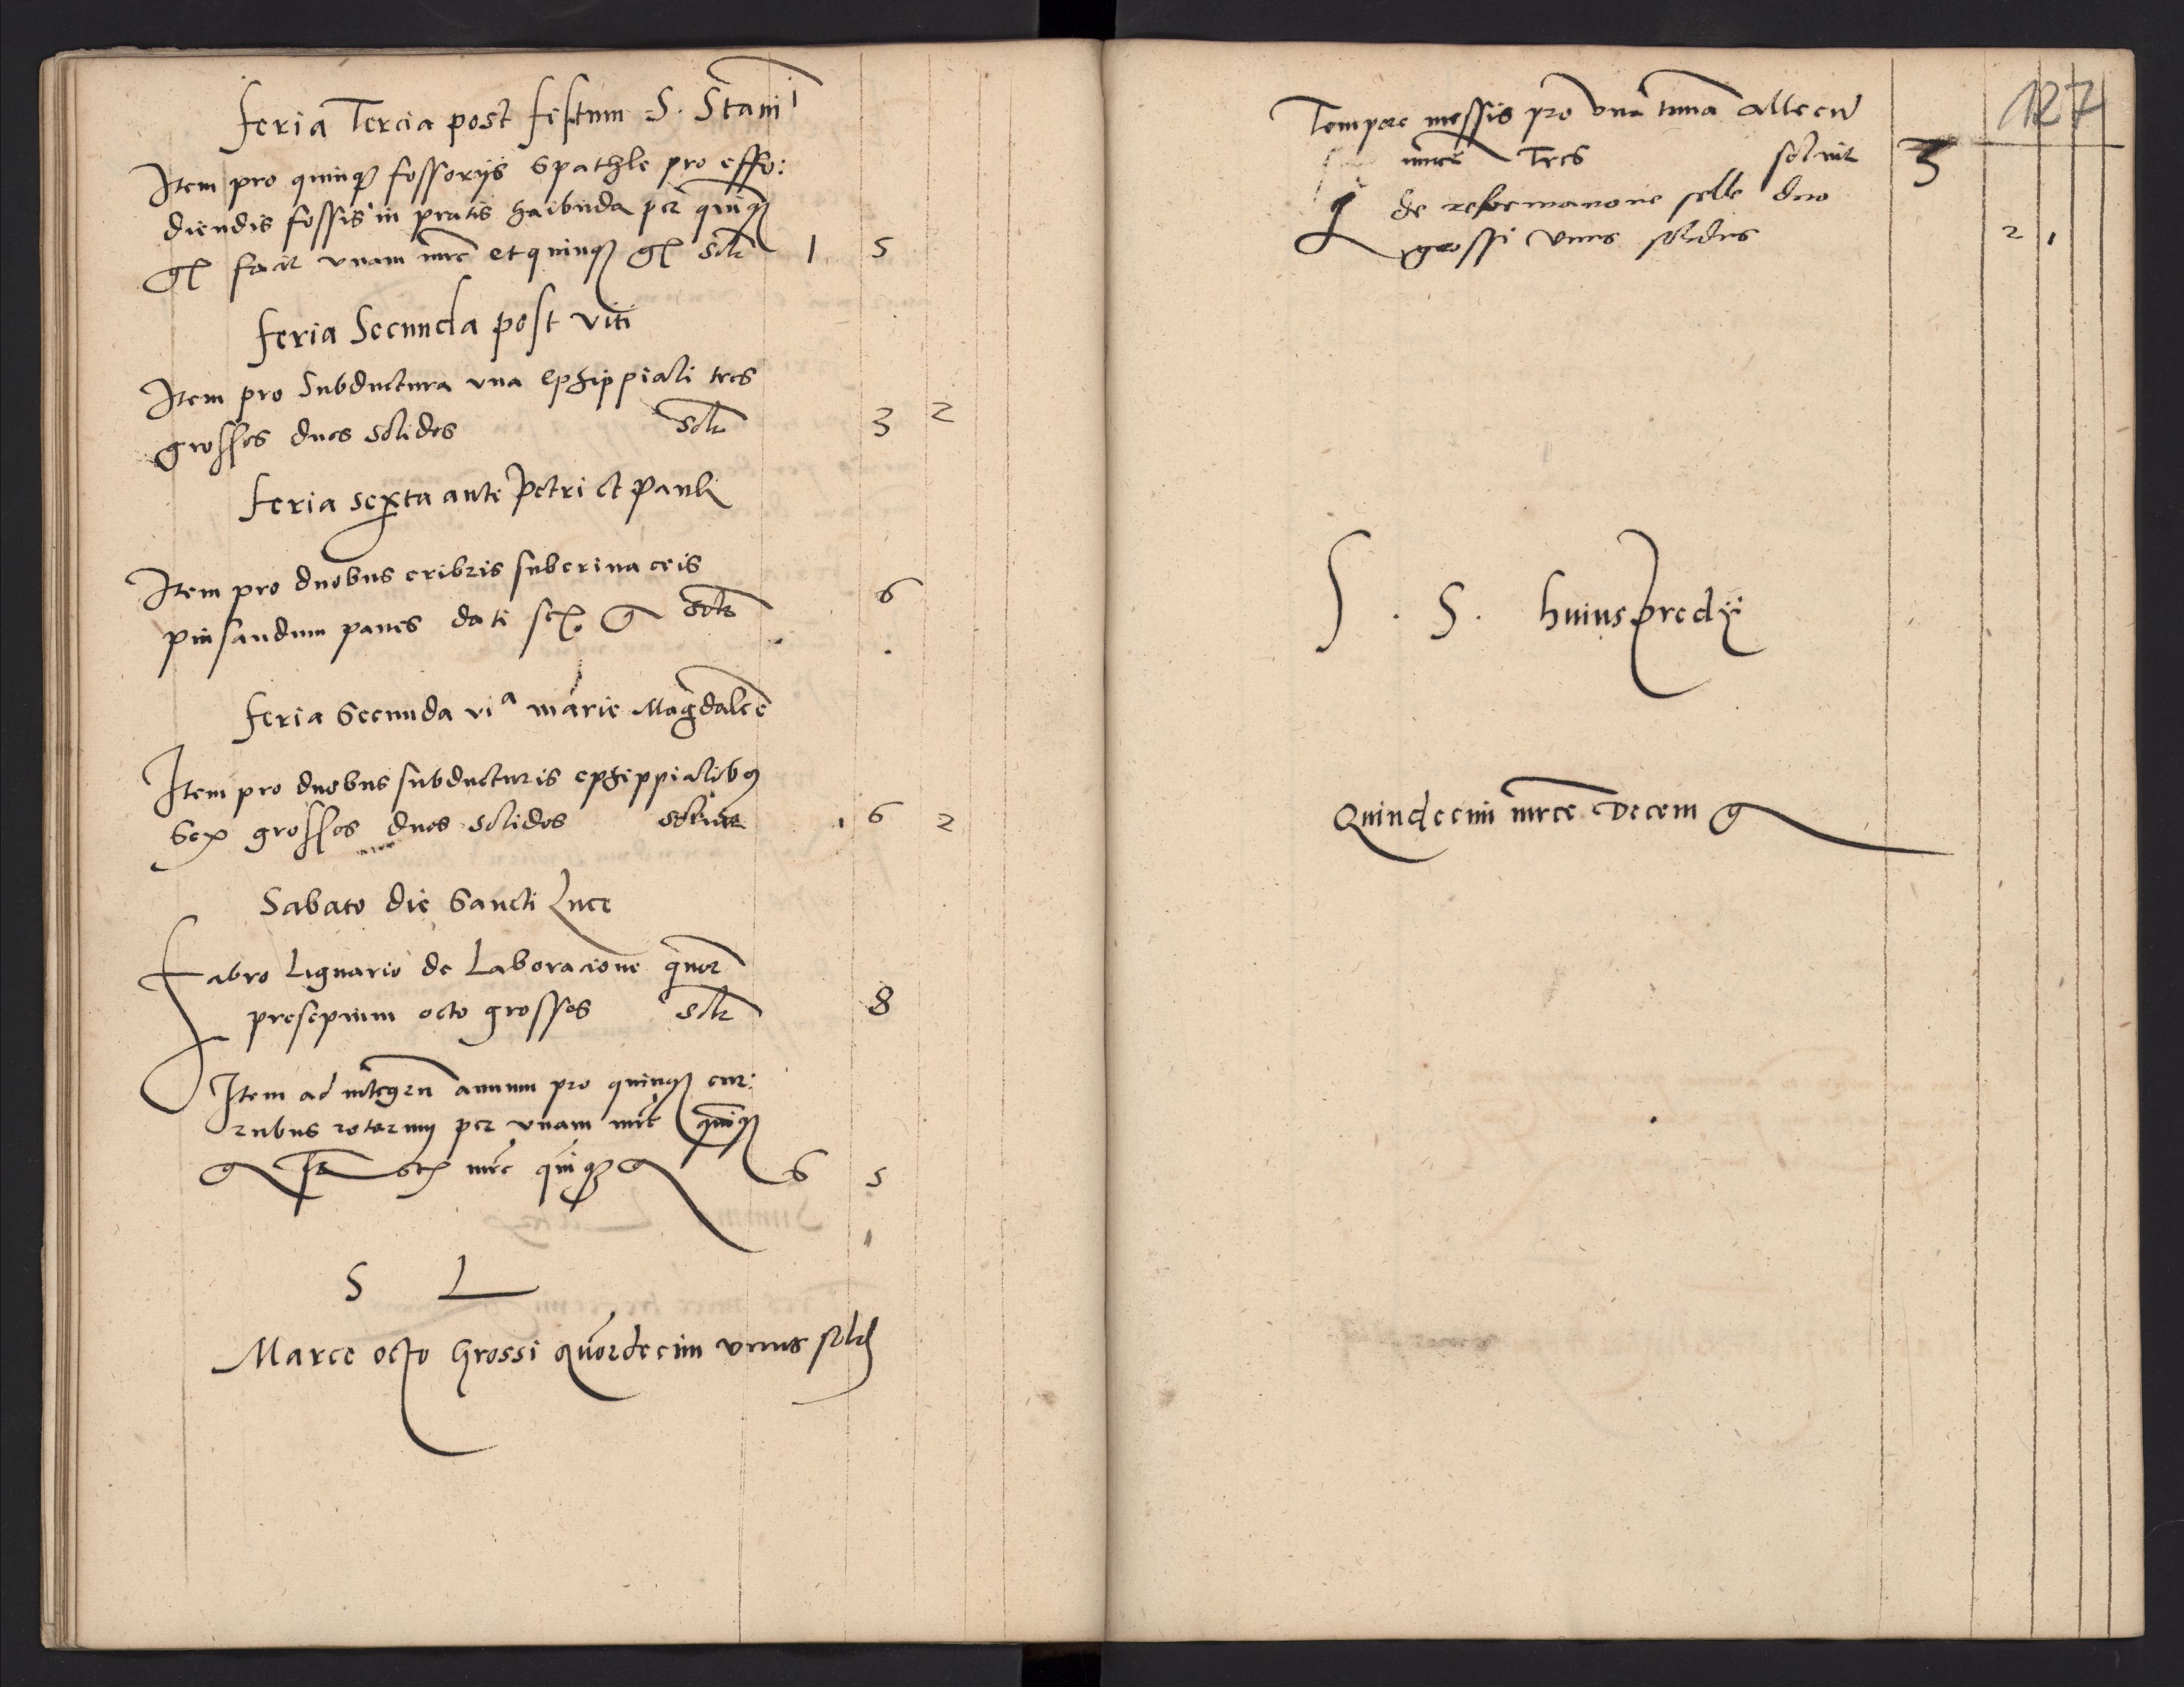 feria Tercia post festum S. Stani
Item pro quinq3 fossorÿs Spathle pro effo:
diendis fossis in pratis haibuda per quinq3
gl facit vnam mrc et quinq3 gl solt 1 5
feria Secunda post viti
Item pro Subductura vna ephippiali tres
grossos duos solidos solt 3 2
feria sexta ante Petri et Pauli
Item pro duobus cribris suberinaceis
pinsandum panes dati sex g solt 6
feria Secunda via marie Magdalee
Item pro duobus subducturis ephippialibq
Sex grossos duos solidos soluit 6 2
Sabato die Sancti Luce
Fabro Lignario de Laboracione quor
presepium octo grossos solt 8
Item ad integru annum pro quinq3 cur:
rubus rotarum per vnam mrc quinq3
g sex mrc quiq3 g 6 5
S L
Marce octo Grossi quordecim vnus solid
127
Tempore messis pro vna tuna allecu
mrce Tres soluit 3
de reformacione selle duo
grossi vnus solidus 2 1
S. S. huius predÿ
Quindecim mrce Decem g